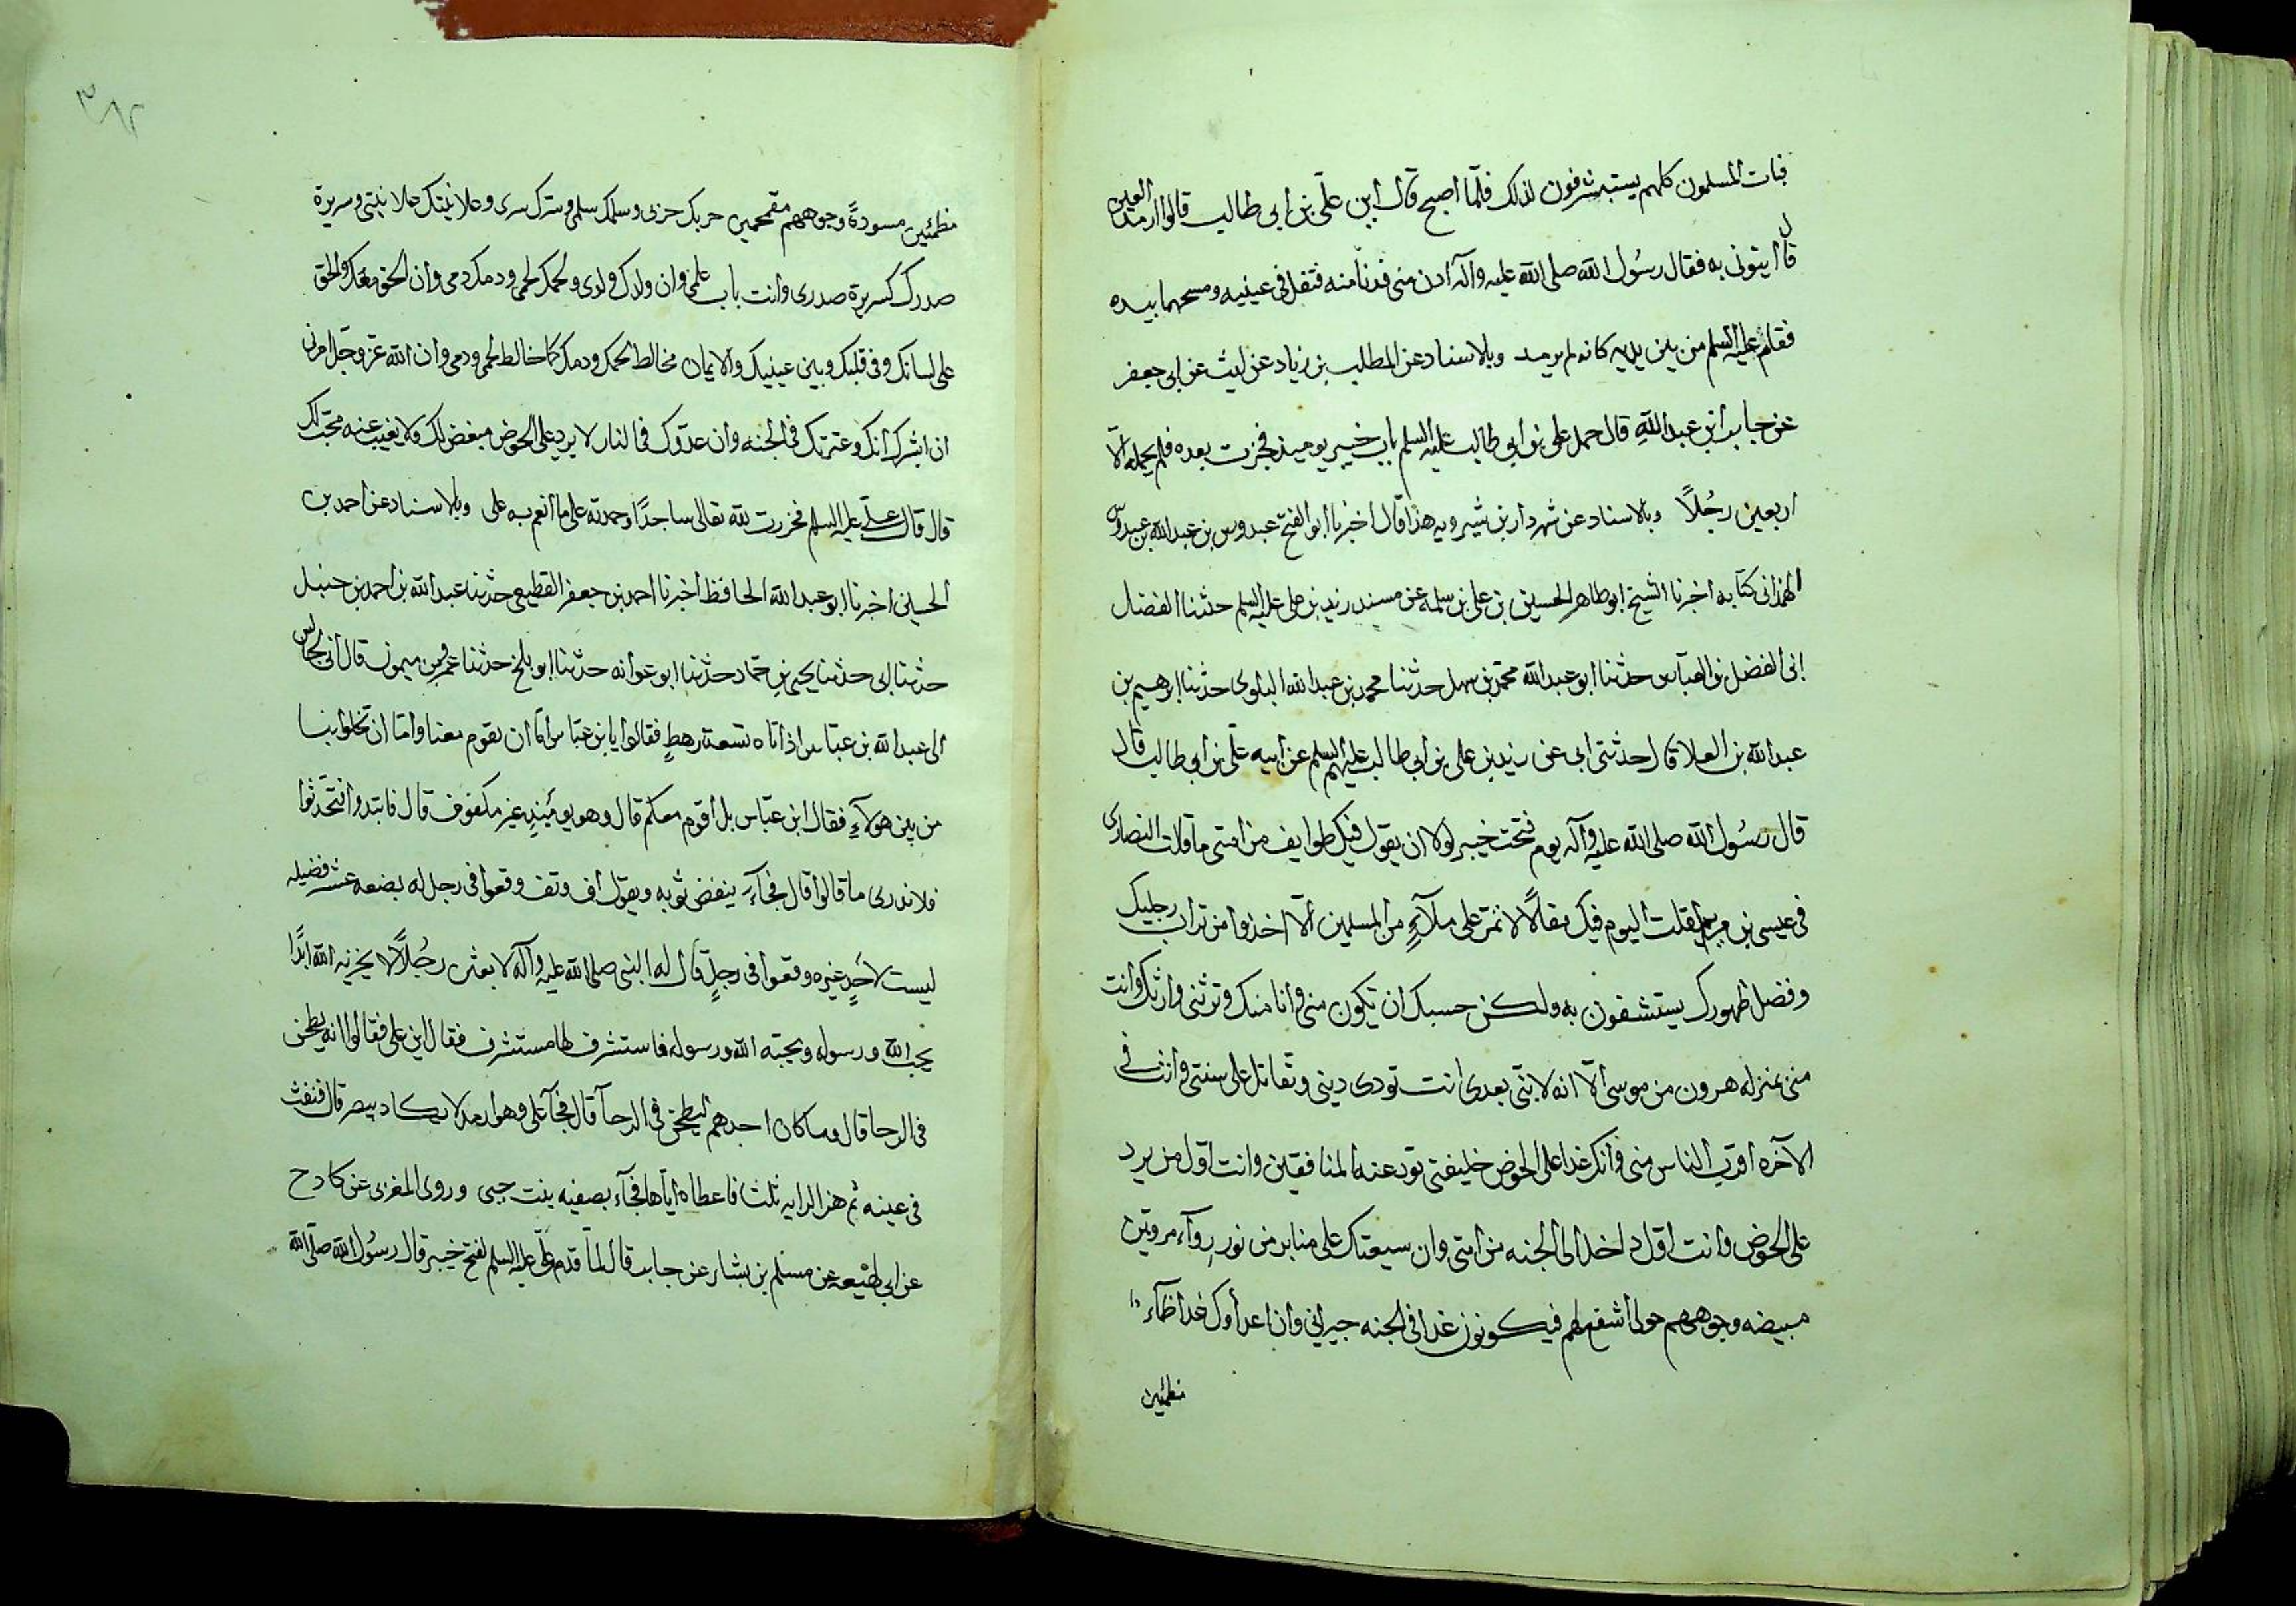 فبات المسلمون كلهم يستبشرفون لذلك فلمّا اصبح قال اين علّى بن ابى طالب قالوا ارمد العين
قال ايتونى به فقال رسُول الله صلى الله عليه وآله ادن منى فدنا منه فتفل فى عينيه ومسحهما بيده
فقام عليه السلم من بين يديه كانه لم يرمد وبالاسناد عن المطلب بن زياد عن ليث عن ابى جعفر
عن جابر ابن عبد الله قال حمل على بن ابى طالب عليه السلم باب خيبر يوميذ فجزت بعده فلم يحمله الّا
اربعين رجُلًا وبالاسناد عن شهردار بن شيرويه هذا قال اخبرنا ابو الفتح عبدوس بن عبد الله بن عبدوس
الهمدانى كتابه اخبرنا الشيخ ابو طاهر الحسين بن على بن سلمه عن مسند زيد بن على عليه السلم حدثنا الفضل
ابن الفضل بن العباس حدثنا ابو عبد الله محمّد بن سهل حدثنا محمد بن عبد الله البلوى حدثنا ابرهيم بن
عبد الله بن العلا قال حدثنى ابى عن زيد بن على بن ابى طالب عليهم السلم عن ابيه علّى بن ابى طالب قال
قال رسُول الله صلى الله عليه وآله يوم فتحت خيبر لولا ان يقول فيك طوايف من امتى ما قالت النصارى
فى عيسى بن مريم لقلت اليوم فيك مقالًا لا تمرّ على ملآءٍ من المسلمين الّا اخذوا من تراب رجليك
وفضل طهورك يستشفون به ولكن حسبك ان تكون منى وانا منك وترثنى وارثك وانت
منى بمنزله هرون من موسى الّا انه لا نبّى بعدى انت تودى دينى وتقاتل على سنتى وانت فى
الآخره اقرب الناس منى وانك غدا على الحوض خليفتى تود عنه المنافقين وانت اول من يرد
على الحوض وانت اول داخل الى الجنه من امتى وان سيعتك على منابر من نور روآء مرويّن
مبيضه وجوههم حولى اشفع لهم فيكونون غدا فى الجنه جيرانى وان اعدأوك غدا ظمآء
مظمئين
مظمئين مسودةً وجوههم مقمحين حربك حربى وسلمك سلمى وسرّك سرى وعلانيتك علانيتى وسريرة
صدرك كسريرة صدرى وانت باب علمى وان ولدك ولدى ولحمك لحمى ودمك دمى وان الحق معك والحق
على لسانك وفى قلبك وبين عينيك والايمان مخالط لحمك ودمك كما خالط لحمى ودمى وان الله عزّ وجلّ امرنى
ان ابشرك انك وعترتك فى الجنه وان عدّوك فى النار لا يرد على الحوض مبغض لك ولا يغيب عنه محبّ لك
قال قال علّى عليه السلم فخررت لله تعالى ساجدًا وحمدته على ما انعم به على وبالاسناد عن احمد بن
الحسين اخبرنا ابو عبد الله الحافظ اخبرنا احمد بن جعفر القطيعى حدثنا عبد الله بن احمد بن حنبل
حدثنا ابى حدثنا يحيى بن حمّاد حدثنا ابو عوانه حدثنا ابو بلخ حدثنا عمرو بن ميمون قال انى لجالس
الى عبد الله بن عبّاس اذ اتاه تسعة رهطٍ فقالوا يا بن عبّاس امّا ان يقوم معنا وامّا ان تخلوا بنا
من بين هولآءِ فقال ابن عبّاس بل اقوم معكم قال وهو يوميِّذٍ غير مكفوف قال فابتدوا فتحدثوا
فلا ندرى ما قالوا قال فجآءَ ينفض ثوبه ويقول اف وتف وقعوا فى رجل له بضعه عشر فضيله
ليست لاحٍد غيره وقعوا فى رجلٍ قال له النبى صلى الله عليه وآله لا بعثن رجُلًا لا يخزيه الله ابدًا
يحب الله ورسوله ويحبّه الله ورسوله فاستشرف لها مستشرف فقال اين على فقالوا انه يطحن
فى الرحا قال وما كان احدهم ليطحن فى الرحآ قال فجآء على وهو ارمد لا يكاد يبصر قال فنفث
فى عينه ثم هز الرايه ثلثا فاعطاه اياها فجآء بصفيه بنت حيى وروى المغربى عن كادح
عن ابى لهيعه عن مسلم بن بشار عن جابر قال لمّا قدم علّى عليه السلم لفتح خيبر قال رسُول الله صلّى الله